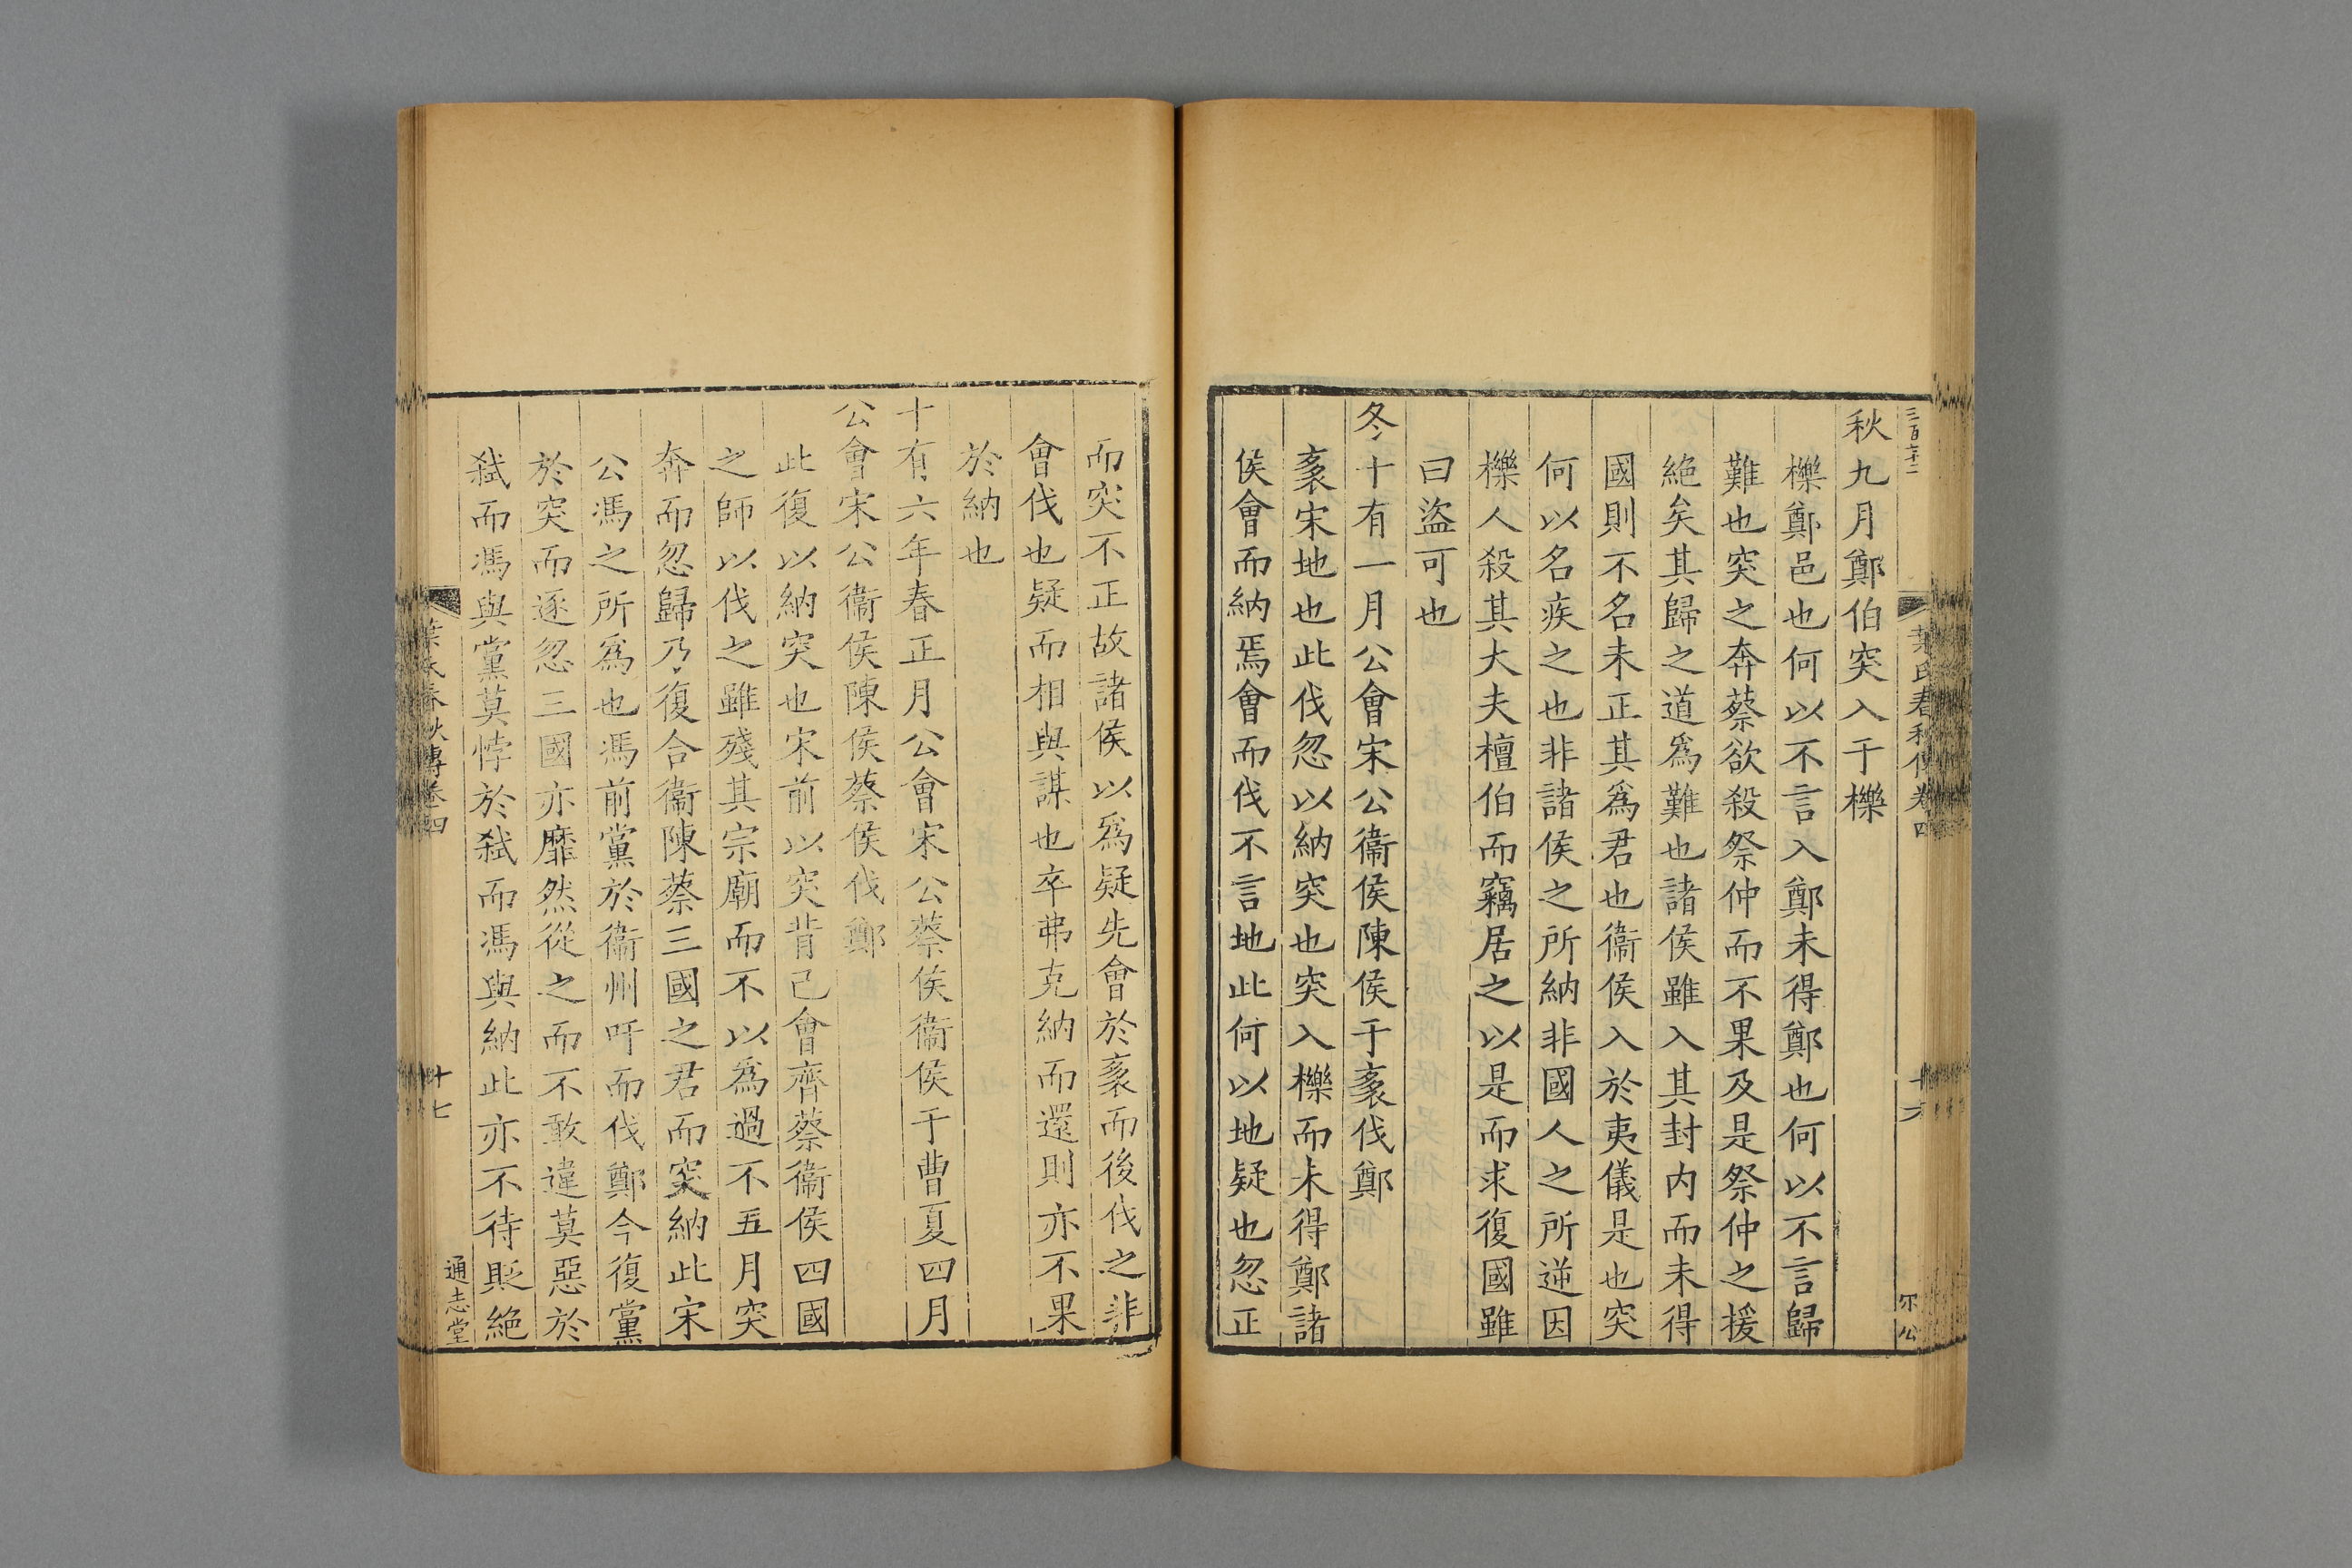 三百六十二
葉氏春秋傳卷四
十六
尔公
秋九月鄭伯突入于櫟
櫟鄭邑也何以不言入鄭未得鄭也何以不言歸
難也突之奔蔡欲殺祭仲而不果及是祭仲之援
絶矣其歸之道爲難也諸侯雖入其封内而未得
國則不名未正其爲君也衞侯入於夷儀是也突
何以名疾之也非諸侯之所納非國人之所逆因
櫟人殺其大夫檀伯而竊居之以是而求復國雖
曰盜可也
冬十有一月公會宋公衞侯陳侯于袲伐鄭
袲宋地也此伐忽以納突也突入櫟而未得鄭諸
侯會而納焉會而伐不言地此何以地疑也忽正
而突不正故諸侯以爲疑先會於袲而後伐之非
會伐也疑而相與謀也卒弗克納而還則亦不果
於納也
十有六年春正月公會宋公蔡侯衞侯于曹夏四月
公會宋公衞侯陳侯蔡侯伐鄭
此復以納突也宋前以突背己會齊蔡衞侯四國
之師以伐之雖殘其宗廟而不以爲過不五月突
奔而忽歸乃復合衞陳蔡三國之君而突納此宋
公馮之所爲也馮前黨於衞州吁而伐鄭今復黨
於突而逐忽三國亦靡然從之而不敢違莫惡於
弑而馮與黨莫悖於弑而馮與納此亦不待貶絶
葉氏春秋傳卷四
十七
通志堂